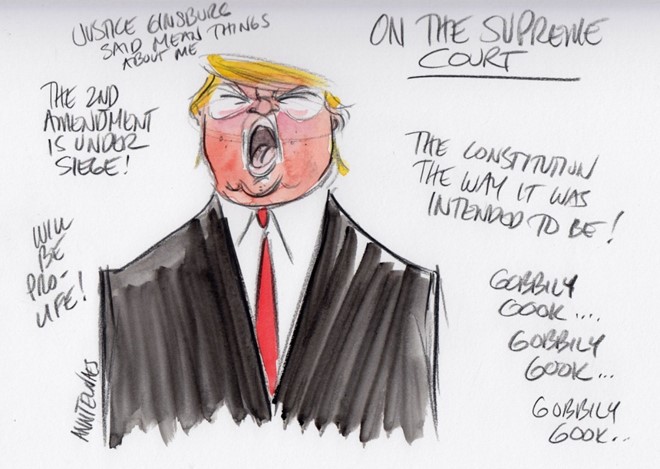 JUSTICE GINSBURG
SAID MEAN THINGS
ABOUT ME
ON THE SUPREME
COURT
THE 2ND
AMENDMENT
IS UNDER
SIEGE!
THE CONSTITUTION
THE WAY IT WAS
INTENDED TO BE!
WILL
BE
PRO-
LIFE!
GOBBILY
GOOK....
GOBBILY
GOOK...
GOBBILY
GOOK..